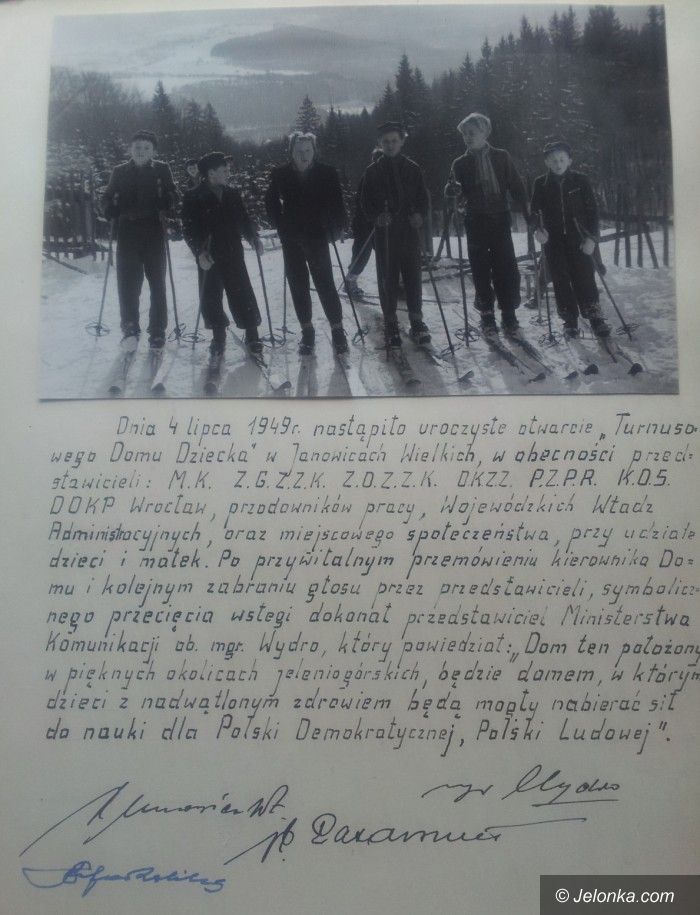 Dnia 4 lipca 1949r. nastąpiło uroczyste otwarcie „Turnuso-
wego Domu Dziecka" w Janowicach Wielkich, w obecności przed-
stawicieli: M.K. Z.G.Z.Z.K. Z.O.Z.Z.K. OKZZ. P.Z.P.R. K.O.S.
DOKP Wrocław, przodowników pracy, Wojewódzkich Władz
Administracyjnych, oraz miejscowego społeczeństwa, przy udziale
dzieci i matek. Po przywitalnym przemówieniu kierownika Do-
mu i kolejnym zabraniu głosu przez przedstawicieli, symbolicz-
nego przecięcia wstęgi dokonał przedstawiciel Ministerstwa
Komunikacji ob. mgr. Wydro, który powiedział: „Dom ten położony
w pięknych okolicach jeleniogórskich, będzie domem, w którym
dzieci z nadwątlonym zdrowiem będą mogły nabierać sił
do nauki dla Polski Demokratycznej, Polski Ludowej".
mgr Wydro
© Jelonka.com